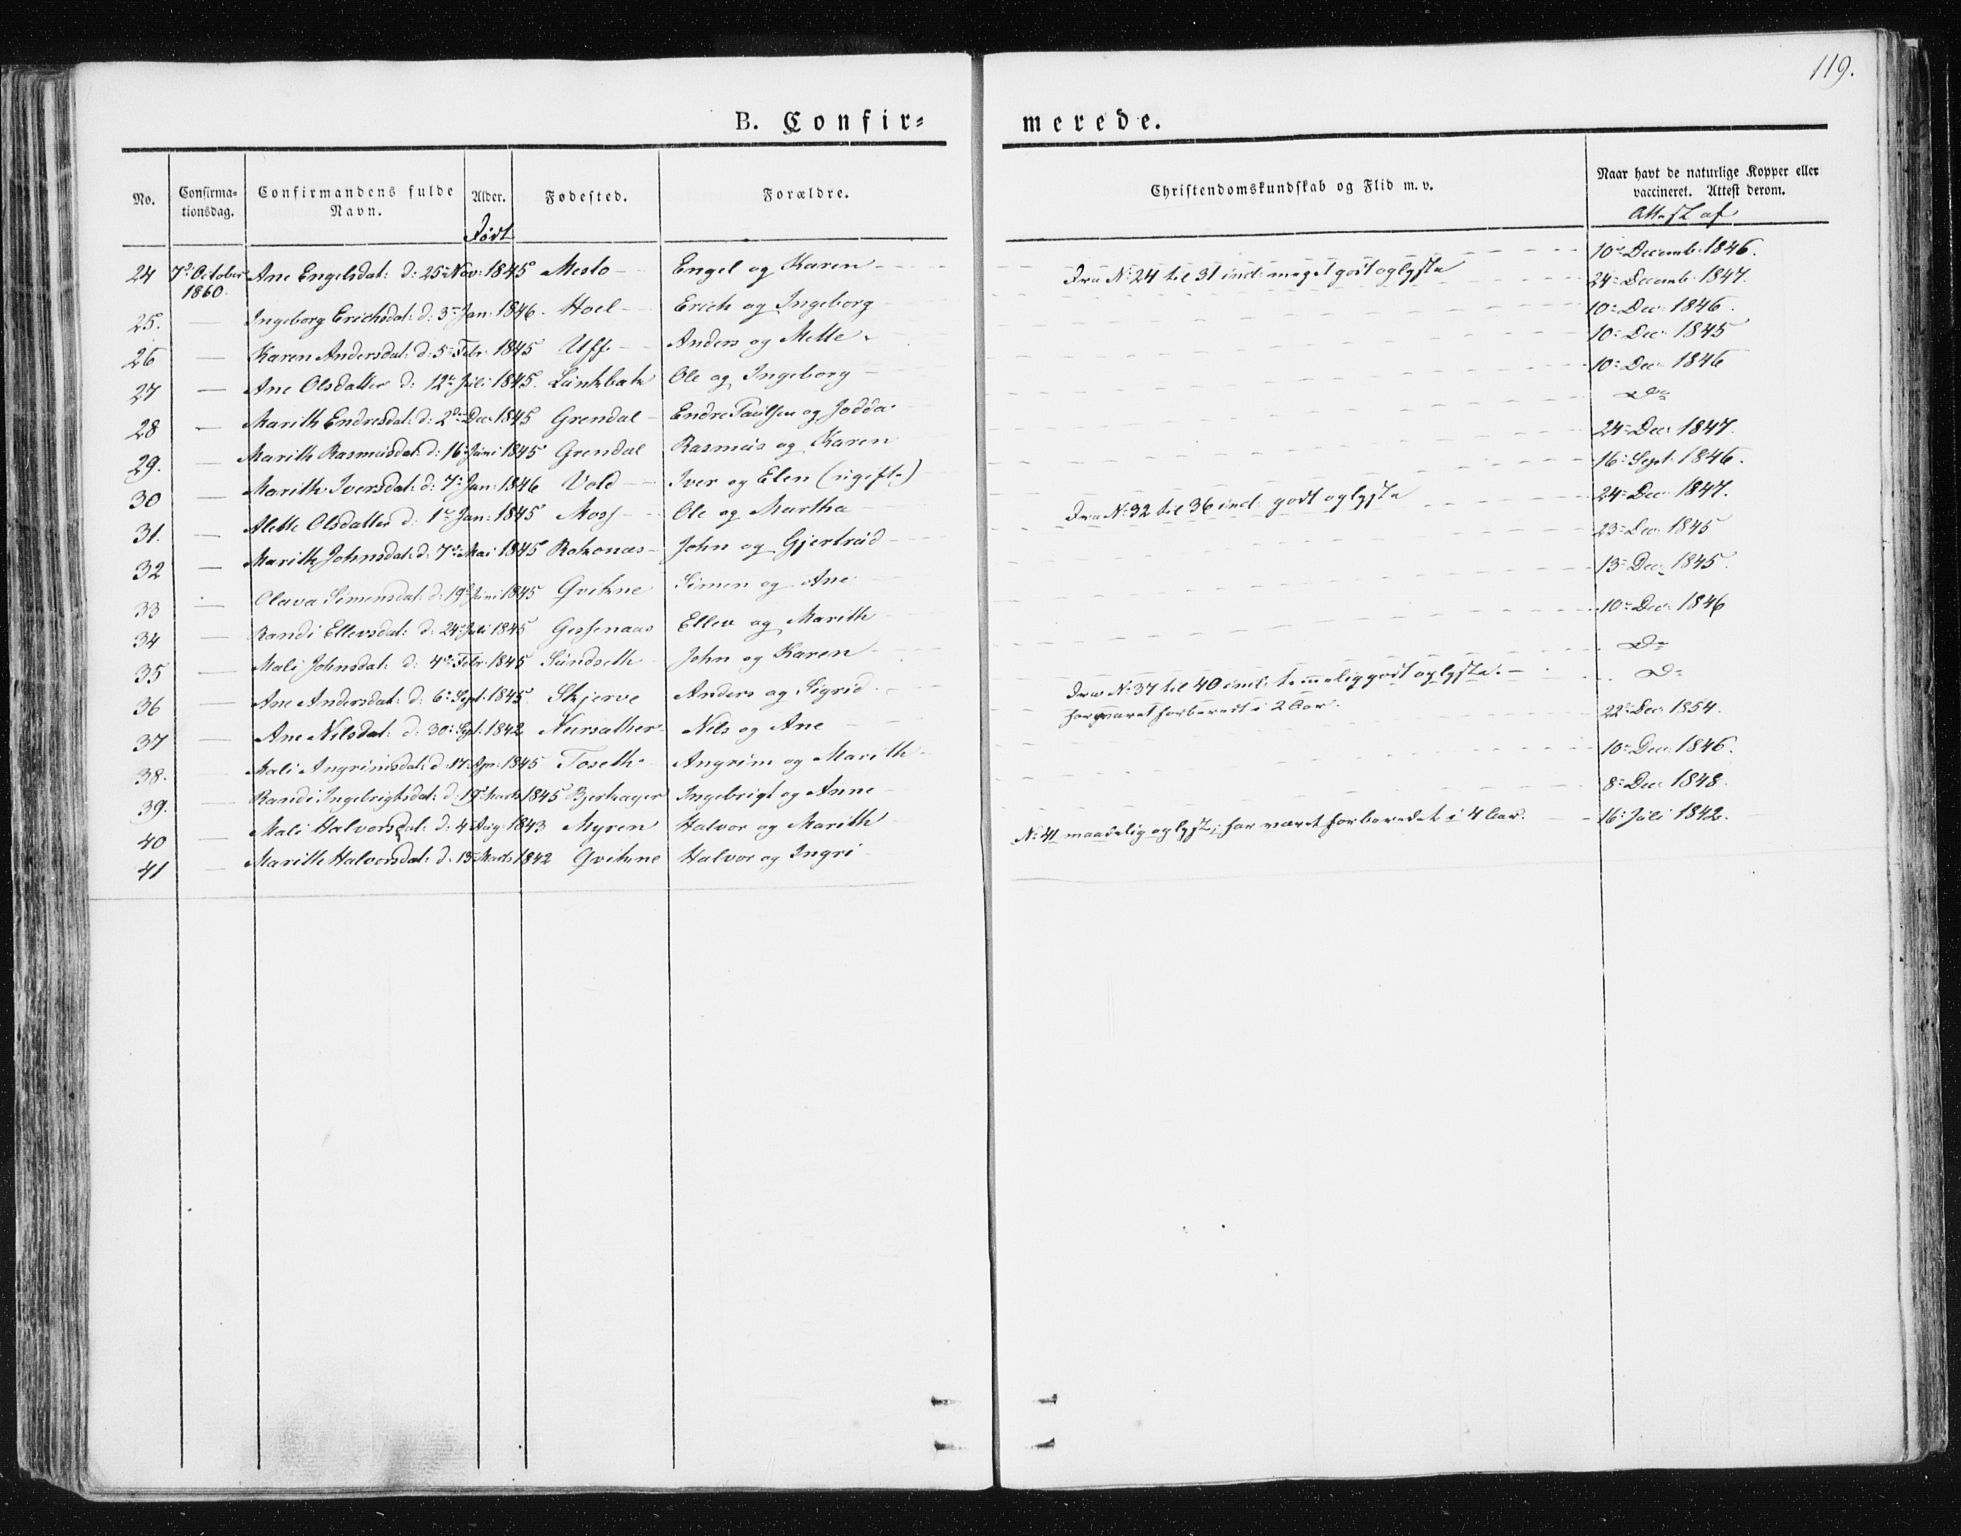 119.
B. Confir= merede.
No. Confirma= tionsdag. Confirmandens fulde Navn. Alder. Fødested. Forældre. Christendomskundskab og Flid m. v. Naar havt de naturlige Kopper eller vaccineret. Attest derom.
Født Attest af
24 7de October 1860. Ane Engelsdat: d: 25 Nov: 1845 Meslo Engel og Karen Fra No 24 til 31 incl: meget godt oplyste 10 Decemb: 1846.
25. Ingeborg Erichsdat: d: 3 Jan: 1846. Hoel Erich og Ingeborg 24 Decemb: 1847.
26 Karen Andersdat: d: 5 Febr: 1845 Uff Anders og Mette 10 Dec: 1846.
27 Ane Olsdatter d: 12 Juli 1845. Ole og Ingeborg 10 Dec: 1845
28 Marith Endresdat: d: 2 Dec: 1845 Grendal Endre Paulsen og Jodda 10 Dec: 1846
29. Marith Rasmusdat: d: 16 Juni 1845 Grendal Rasmus og Karen Do
30 Marith Iversdat: d: 7 Jan: 1846 Vold Iver og Elen (ugifte) 24 Dec: 1847.
31. Alette Olsdatter d: 1 Jan: 1845 Mosf Ole og Martha 16 Sept: 1846.
32 Marith Johnsdat: d: 7 Mai 1845 John og Gjertrud Fra No 32 til 36 incl: godt oplyste 24 Dec: 1847.
33 Olava Simensdat: d: 19 Juni 1845 Qvikne Simen og Ane 23 Dec: 1845
34 Randi Ellevsdat: d: 24 Juli 1845 Ellev og Marith 13 Dec: 1845.
35 Mali Johnsdat: d: 4 Febr: 1845 Sundseth John og Karen 10 Dec: 1846
36 Ane Andersdat: d: 6 Sept: 1845 Skjerve Anders og Sigrid Do
37 Ane Nilsdat: d: 30 Sept: 1842 Nils og Ane Fra No 37 til 40 incl: temmelig godt oplyste. Do
har været forberedt i 2 Aar.
38. Mali Angrimsdat: d: 17 Apr: 1845 Toseth Angrim og Marith 22 Dec: 1854.
39. Randi Ingebrigtsdat: d: 19 Marts 1845 Bjerkager Ingebrigt og Anne 10 Dec: 1846.
40 Mali Halvorsdat: d: 4 Aug: 1843 Myren Halvor og Marith 8 Dec: 1848.
41 Marith Halvorsdat: d: 13 Marts 1842 Qvikne Halvor og Ingri No 41 maadelig oplyst; har været forberedet i 4 Aar. 16 Juli 1842.